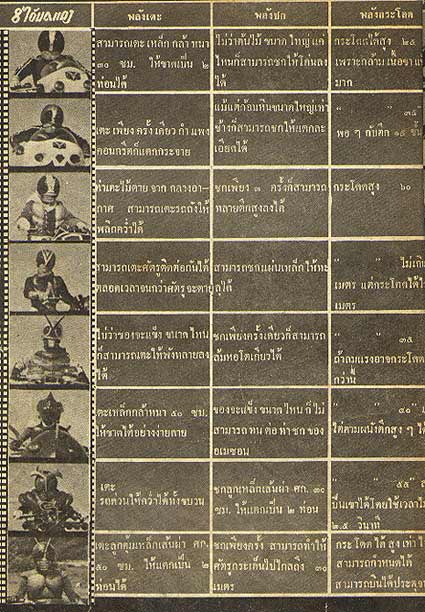 8 ไอ้มดแดง
พลังเตะ
พลังชก
พลังกระโดด
สามารถเตะ เหล็ก กล้า หนา
๓๐ ซม. ให้ขาดเป็น ๒
ท่อนได้
ไม่ว่าต้นไม้ ขนาด ใหญ่ แค่
ไหนก็สามารถชกให้โค่นลง
ได้
กระโดดได้สูง ๒๕
เพราะกล้าม เนื้อขา
มาก
เตะ เพียง ครั้ง เดียว กำ แพง
คอนกรีตก็แตกกระจาย
แม้แต่ก้อนหินขนาดใหญ่เท่า
ช้างก็สามารถชกให้แตกละ
เอียดได้
" " ๓๕
พอ ๆ กับตึก ๑๕ ชั้น
ท่าเตะไม้ตาย จาก กลางอา-
กาศ สามารถเตะรถถังให้
พลิกคว่ำได้
ชกเพียง ๓ ครั้งก็สามารถ
หลายตึกสูงลงได้
กระโดดสูง ๖๐
สามารถเตะศัตรูติดต่อกันได้
ตลอดเวลาจนกว่าศัตรู จะตาย
สามารถชกแผ่นเหล็ก ให้ทะ
ลุได้
" " ไม่เกิน
เมตร แต่กระโดดได้ไก
เมตร
ไม่ว่าของจะแข็ง ขนาด ไหน
ก็สามารถเตะให้พังทลายลง
ได้
ชกเพียงครั้งเดียวก็สามารถ
ล้มหอโตเกียวได้
" " ๓๕
ถ้าลมแรงอาจกระโดด
กว่านี้
เตะเหล็กกล้าหนา ๕๐ ซม.
ให้ขาดได้อย่างง่ายดาย
ของจะแข็ง ขนาดไหน ก็ ไม่
สามารถ ทน ต่อ ท่า ชก ของ
อเมซอน
" " ๔๐
ไต่ตามผนังตึกสูง ๆ ได้
เตะ
รถด่วนให้คว่ำได้ทั้งขบวน
ชกลูกเหล็กเส้นผ่า ศก. ๓๐
ซม. ให้แตกเป็น ๒ ท่อน
" " ๕๕
ปีนเขาได้โดยใช้เวลา
๒.๕ วินาที
เตะลูกตุ้มเหล็กเส้นผ่า ศก.
๕๐ ซม. ให้แตกเป็น ๒
ท่อนได้
ชกเพียงครั้ง สามารถทำให้
ศัตรูกระเด็นไปไกลถึง ๓๐
เมตร
กระ โดด ได้ สูง เท่า
สามารถกำหนดได้
สามารถบินได้